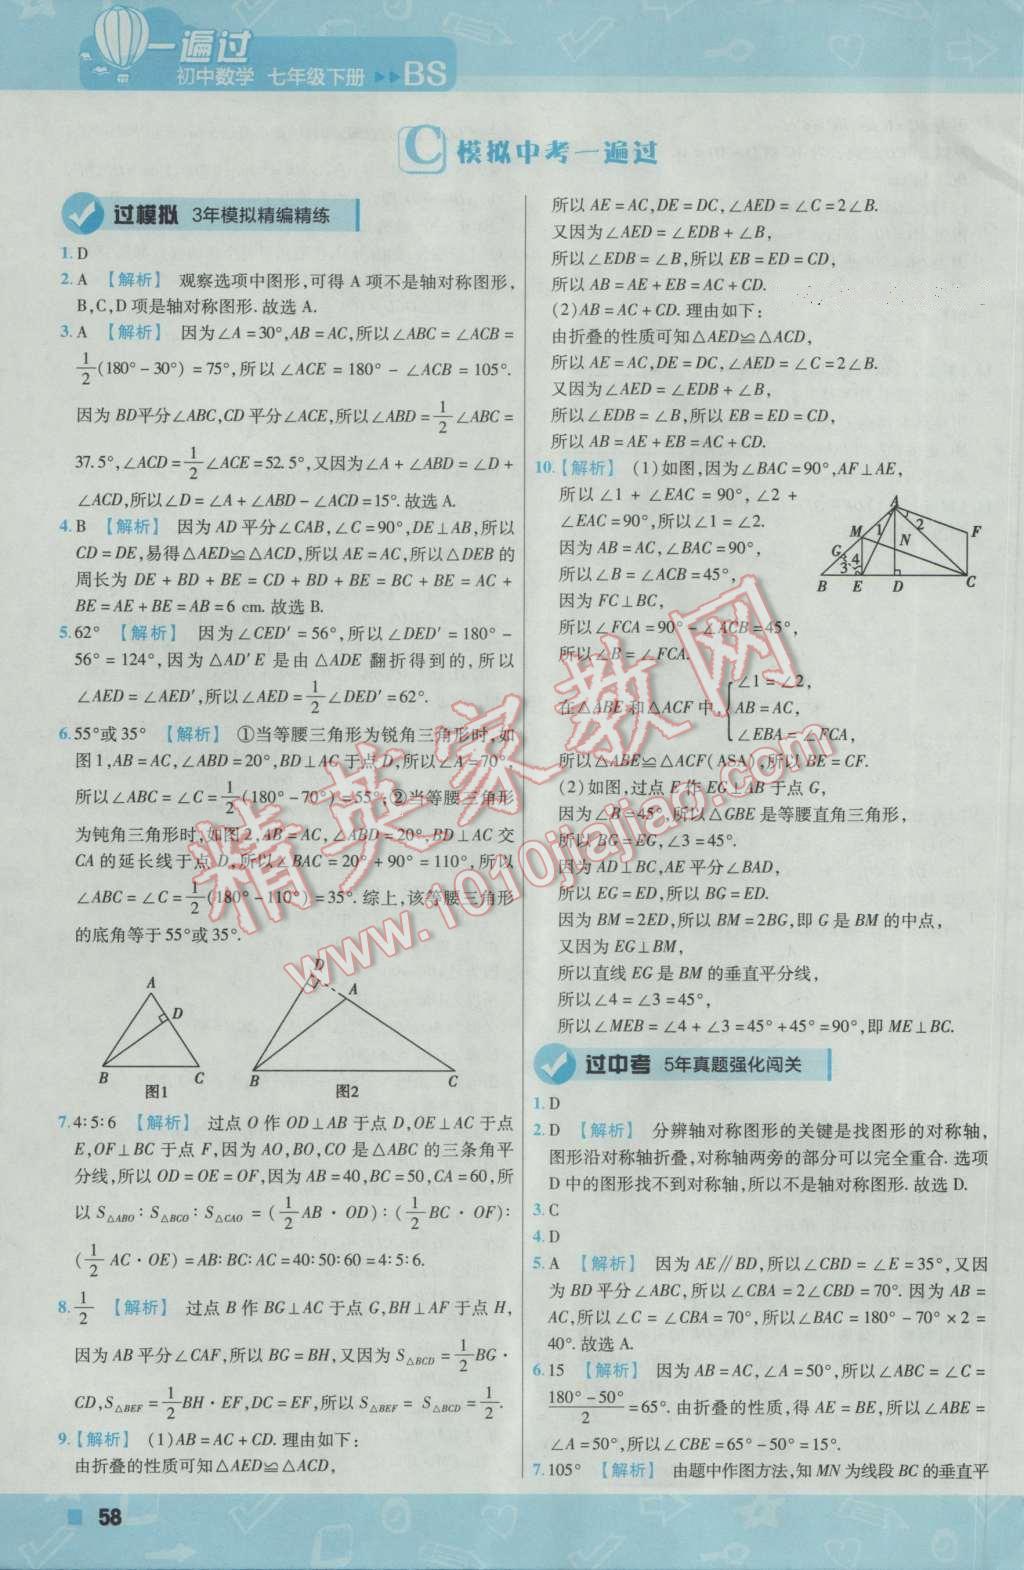 一遍过
初中数学 七年级下册 ▸▸ BS
C 模拟中考一遍过
过模拟 3年模拟精编精练
1. D
2. A 【解析】 观察选项中图形,可得 A 项不是轴对称图形,
B,C,D 项是轴对称图形.故选 A.
3. A 【解析】 因为∠A=30°,AB=AC,所以∠ABC=∠ACB=
1/2(180°-30°)=75°,所以∠ACE=180°-∠ACB=105°.
因为 BD平分∠ABC,CD 平分∠ACE,所以∠ABD=1/2∠ABC=
37.5°,∠ACD=1/2∠ACE=52.5°,又因为∠A+∠ABD=∠D+
∠ACD,所以∠D=∠A+∠ABD-∠ACD=15°.故选 A.
4. B 【解析】 因为 AD 平分∠CAB,∠C=90°,DE⊥AB,所以
CD=DE,易得△AED≌△ACD,所以 AE=AC,所以△DEB 的
周长为 DE+BD+BE=CD+BD+BE=BC+BE=AC+
BE=AE+BE=AB=6 cm.故选 B.
5. 62° 【解析】 因为∠CED′=56°,所以∠DED′=180°-
56°=124°,因为△AD′E 是由△ADE 翻折得到的,所以
∠AED=∠AED′,所以∠AED=1/2∠DED′=62°.
6. 55°或35° 【解析】 ①当等腰三角形为锐角三角形时,如
图1,AB=AC,∠ABD=20°,BD⊥AC于点D,所以∠A=70°,
所以∠ABC=∠C=1/2(180°-70°)=55°;②当等腰三角形
为钝角三角形时,如图2,AB=AC,∠ABD=20°,BD⊥AC 交
CA 的延长线于点 D,所以∠BAC=20°+90°=110°,所以
∠ABC=∠C=1/2(180°-110°)=35°.综上,该等腰三角形
的底角等于55°或35°.
A D B C 图1
D A B C 图2
7. 4:5:6 【解析】 过点 O 作 OD⊥AB 于点 D,OE⊥AC 于点
E,OF⊥BC 于点 F,因为 AO,BO,CO 是△ABC 的三条角平
分线,所以 OD=OE=OF,因为 AB=40,BC=50,CA=60,所
以 S△ABO:S△BCO:S△CAO=(1/2AB·OD):(1/2BC·OF):
(1/2AC·OE)=AB:BC:AC=40:50:60=4:5:6.
8. 1/2 【解析】 过点 B 作 BG⊥AC 于点 G,BH⊥AF 于点 H,
因为 AB 平分∠CAF,所以 BG=BH,又因为 S△BCD=1/2BG·
CD,S△BEF=1/2BH·EF,DC=EF,所以 S△BEF=S△BCD=1/2.
9. 【解析】 (1)AB=AC+CD.理由如下:
由折叠的性质可知△AED≌△ACD,
所以 AE=AC,DE=DC,∠AED=∠C=2∠B.
又因为∠AED=∠EDB+∠B,
所以∠EDB=∠B,所以 EB=ED=CD,
所以 AB=AE+EB=AC+CD.
(2)AB=AC+CD.理由如下:
由折叠的性质可知△AED≌△ACD,
所以 AE=AC,DE=DC,∠AED=∠C=2∠B.
又因为∠AED=∠EDB+∠B,
所以∠EDB=∠B,所以 EB=ED=CD,
所以 AB=AE+EB=AC+CD.
10. 【解析】 (1)如图,因为∠BAC=90°,AF⊥AE,
所以∠1+∠EAC=90°,∠2+
∠EAC=90°,所以∠1=∠2.
因为 AB=AC,∠BAC=90°,
所以∠B=∠ACB=45°,
因为 FC⊥BC,
所以∠FCA=90°-∠ACB=45°,
所以∠B=∠FCA.
A 1 2 M N F G 3 4 B E D C
∠1=∠2,
在△ABE 和△ACF 中, AB=AC,
∠EBA=∠FCA,
所以△ABE≌△ACF(ASA),所以 BE=CF.
(2)如图,过点 E 作 EG⊥AB 于点 G,
因为∠B=45°,所以△GBE 是等腰直角三角形,
所以 BG=EG,∠3=45°.
因为 AD⊥BC,AE 平分∠BAD,
所以 EG=ED,所以 BG=ED.
因为 BM=2ED,所以 BM=2BG,即 G 是 BM 的中点,
又因为 EG⊥BM,
所以直线 EG 是 BM 的垂直平分线,
所以∠4=∠3=45°,
所以∠MEB=∠4+∠3=45°+45°=90°,即 ME⊥BC.
过中考 5年真题强化闯关
1. D
2. D 【解析】 分辨轴对称图形的关键是找图形的对称轴,
图形沿对称轴折叠,对称轴两旁的部分可以完全重合.选项
D 中的图形找不到对称轴,所以不是轴对称图形.故选 D.
3. C
4. D
5. A 【解析】 因为 AE∥BD,所以∠CBD=∠E=35°,又因
为 BD 平分∠ABC,所以∠CBA=2∠CBD=70°.因为 AB=
AC,所以∠C=∠CBA=70°,所以∠BAC=180°-70°×2=
40°.故选 A.
6. 15 【解析】 因为 AB=AC,∠A=50°,所以∠ABC=∠C=
(180°-50°)/2=65°.由折叠的性质,得 AE=BE,所以∠ABE=
∠A=50°,所以∠CBE=65°-50°=15°.
7. 105° 【解析】 由题中作图方法,知 MN 为线段 BC 的垂直平
58
精英家教网
www.1010jiajiao.com